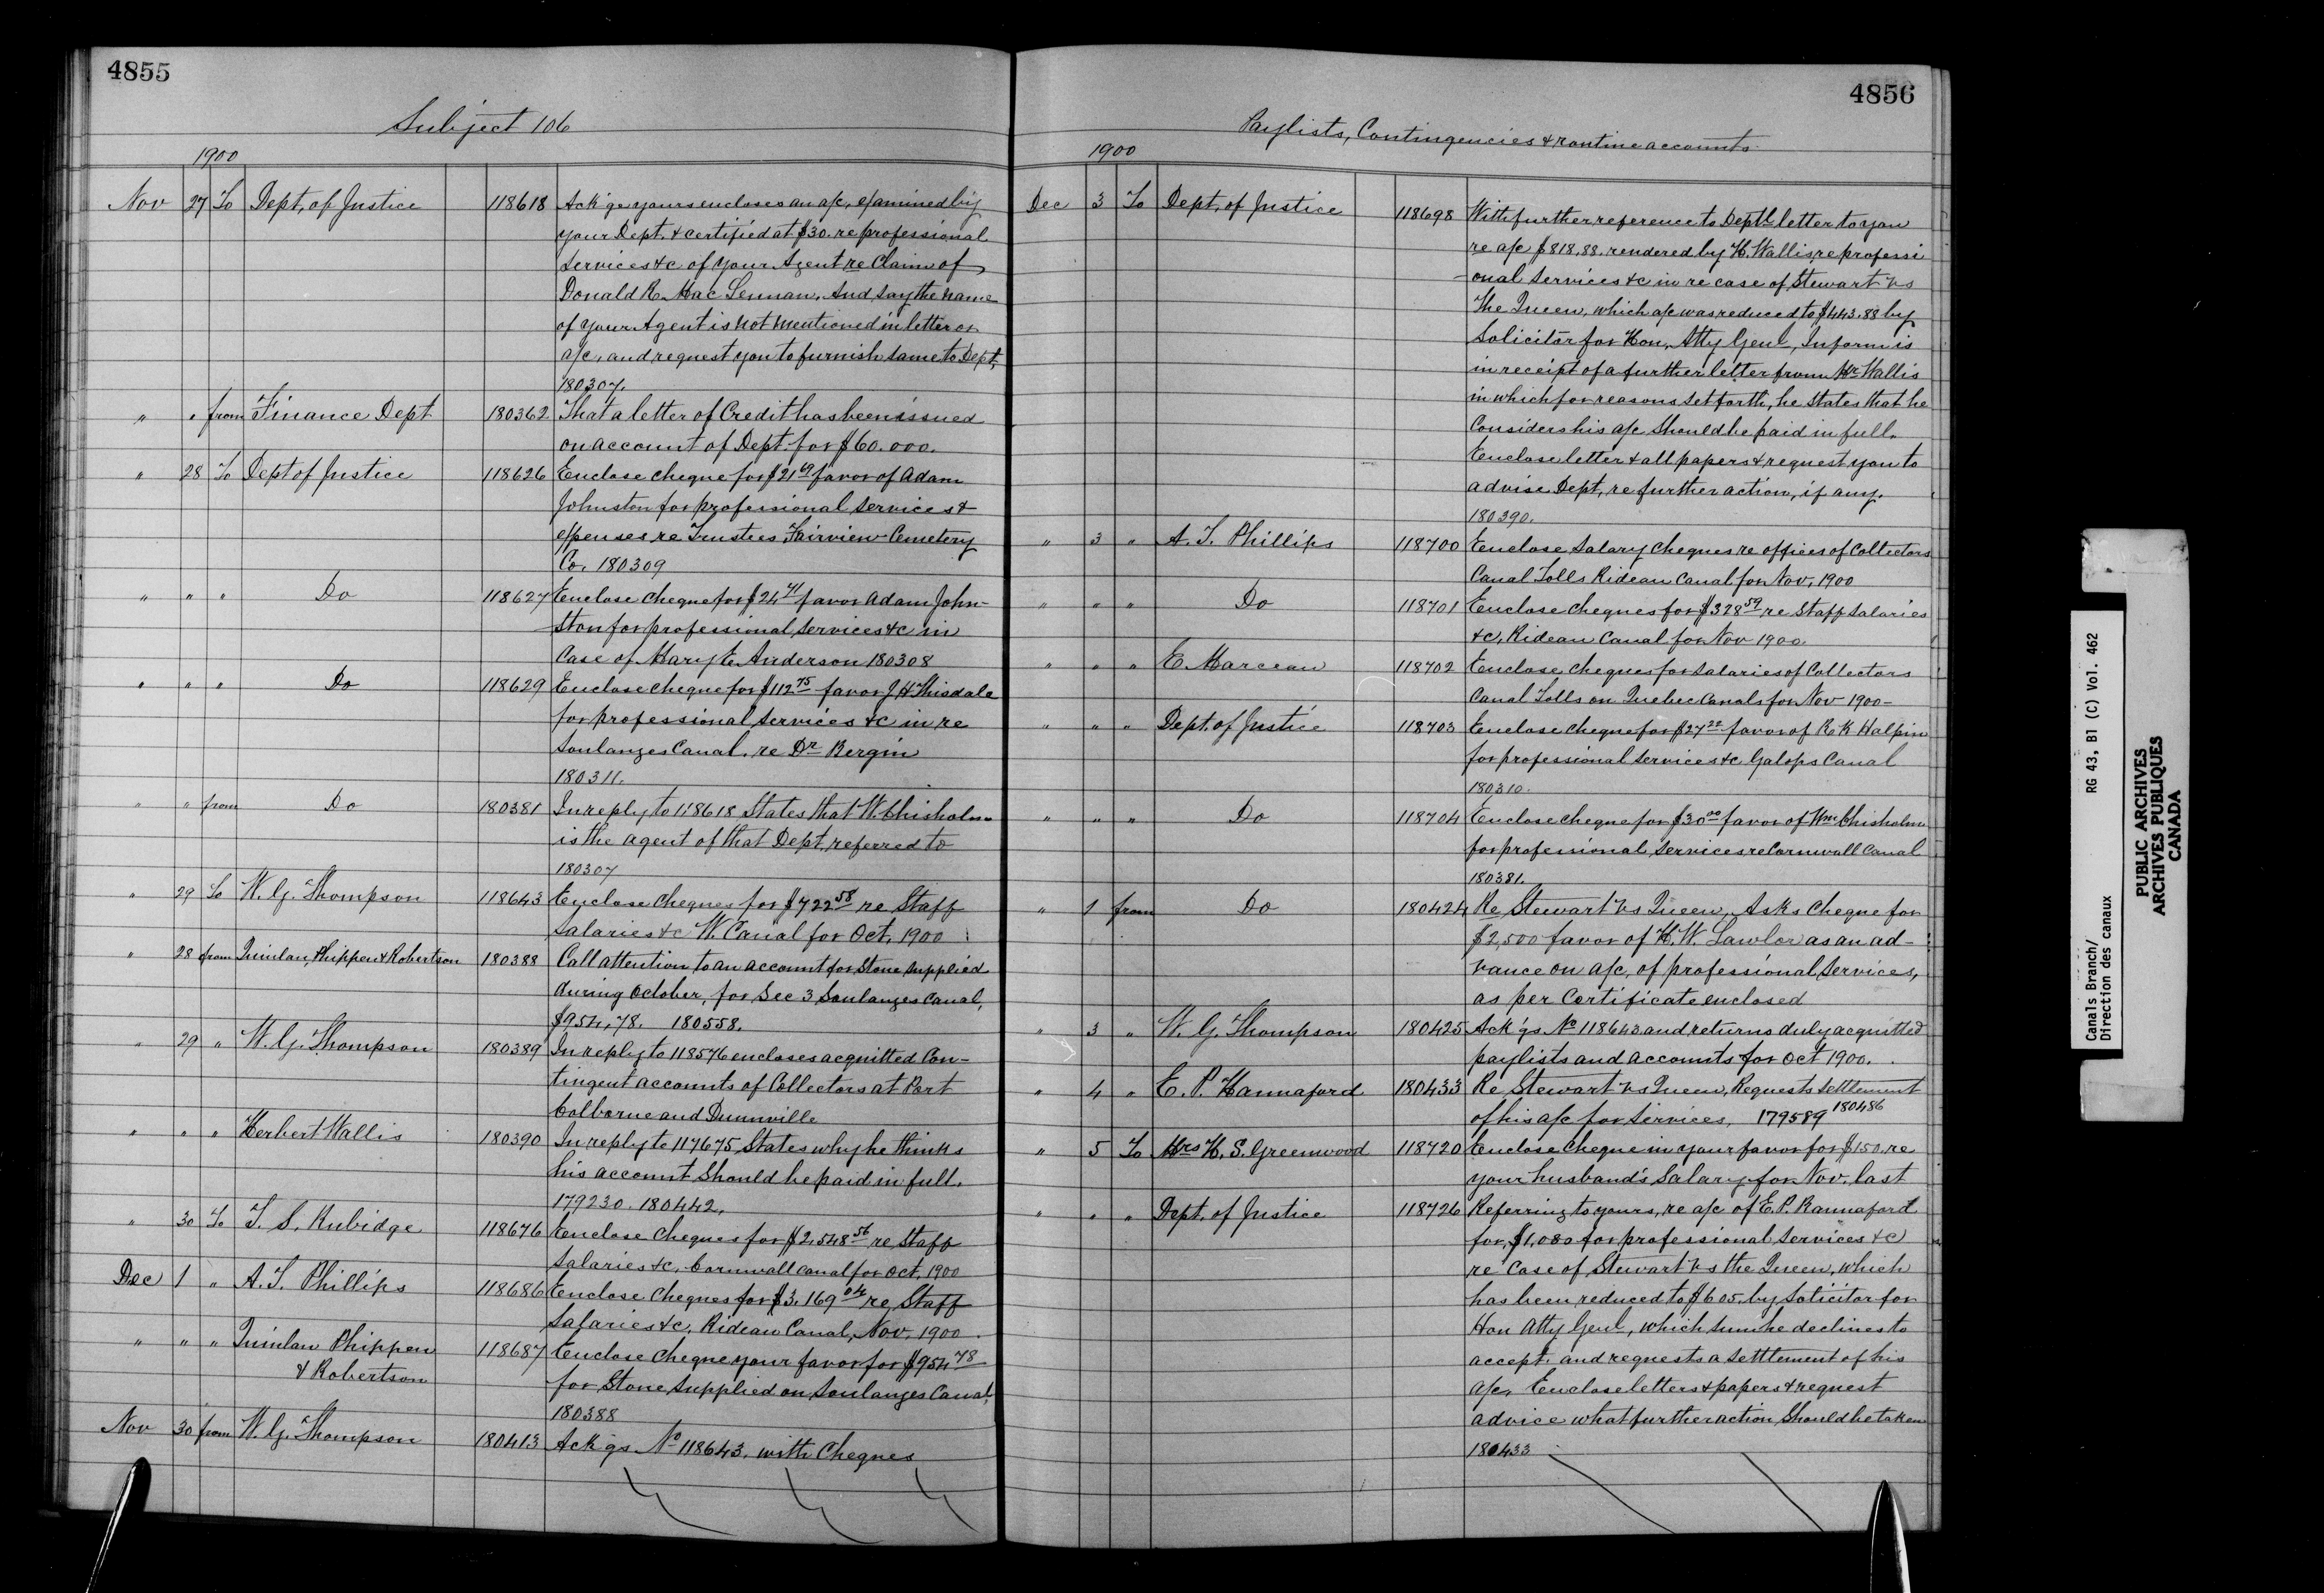 4855
Subject 106
1900
Nov 27 To Dept. of Justice 118618 Ack'ge yours encloses an a/c, examined by
your Dept. & certified at $30. re professional
Services &c of your Agent re Claim of
Donald R. Mac Lennan. And say the name
of your Agent is not mentioned in letter or
a/c, and request you to furnish same to Dept.
180307.
" " from Finance Dept 180362 That a letter of Credit has been issued
on account of Dept. for $60.000.
" 28 To Dept of Justice 118626 Enclose cheque for $21 69 favor of Adam
Johnston for professional services &
expenses re Trustees, Fairview Cemetery
Co. 180309
" " " Do 118627 Enclose cheque for $24 41 favor Adam John-
ston for professional services &c in
Case of Mary E. Anderson 180308
" " " Do 118629 Enclose cheque for $112 75 favor J. H. Thisdale
for professional services &c in re
Soulanges Canal. re Dr Bergin
180311.
" " from Do 180381 In reply to 118618 States that W. Chisholm
is the agent of that Dept, referred to
180307
" 29 To W. G. Thompson 118643 Enclose cheques for $722 58 re Staff
Salaries &c W. Canal for Oct, 1900
" 28 from Quinlan, Phippen & Robertson 180388 Call attention to an account for Stone supplied
during October, for Sec 3 Soulanges Canal,
$954.78. 180558.
" 29 " W. G. Thompson 180389 In reply to 118576 encloses acquitted Con-
tingent accounts of Collectors at Port
Colborne and Dunnville
" " " Herbert Wallis 180390 In reply to 117675, States why he thinks
his account Should be paid in full.
179230. 180442.
" 30 To T. S. Rubidge 118676 Enclose cheques for $2,548 56 re Staff
Salaries &c, Cornwall Canal for Oct, 1900
Dec 1 " A. T. Phillips 118686 Enclose Cheques for $3.169 04 re Staff
Salaries &c, Rideau Canal, Nov, 1900
" " " Quinlan Phippen 118687 Enclose Cheque your favor for $954 78
& Robertson for Stone supplied on Soulanges Canal,
180388
Nov 30 from W. G. Thompson 180413 Ack'gs No 118643. with Cheques
4856
Paylists, Contingencies & routine accounts
1900
Dec 3 To Dept. of Justice 118698 With further reference to Deptl letter to you
re a/c $818.88. rendered by H. Wallis, re professi
-onal services &c in re case of Stewart vs
The Queen, which a/c was reduced to $443.88 by
Solicitor for Hon. Atty Genl, Inform is
in receipt of a further letter from Mr Wallis
in which for reasons set forth, he States that he
Considers his a/c Should be paid in full.
Enclose letter & all papers & request you to
advise Dept, re further action, if any.
180390.
" 3 " A. T. Phillips 118700 Enclose Salary cheques re offices of Collectors
Canal Tolls Rideau Canal for Nov, 1900
" " " Do 118701 Enclose cheques for $328 59 re Staff Salaries
&c, Rideau Canal for Nov 1900.
" " " E. Marceau 118702 Enclose cheques for salaries of Collectors
Canal Tolls on Quebec Canals for Nov 1900-
" " " Dept. of Justice 118703 Enclose cheque for $27 22 favor of R. K Halpin
for professional services &c. Galops Canal
180310.
" " " Do 118704 Enclose cheque for $30 00 favor of Wm Chisholm
for professional services re Cornwall Canal
180381.
" 1 from Do 180424 Re Stewart vs Queen, Asks cheque for
$2,500 favor of H. W. Lawlor as an ad-
vance on a/c, of professional services,
as per Certificate enclosed
" 3 " W. G. Thompson 180425 Ack'gs No 118643 and returns duly acquitted
paylists and accounts for Oct 1900.
" 4 " E. P. Hannaford 180433 Re Stewart vs Queen, Requests settlement
of his a/c for services, 179589 180486
" 5 To Mrs H. S. Greenwood 118720 Enclose cheque in your favor for $150. re
your husband's Salary for Nov. last
" " " Dept. of Justice 118726 Referring to yours, re a/c of E. P. Hannaford
for, $1,080 for professional services &c
re Case of Stewart vs the Queen, which
has been reduced to $605. by Solicitor for
Hon Atty Genl, which sum he declines to
accept. and requests a settlement of his
a/c, Enclose letters & papers & request
advice what further action, Should be taken
180433
Canals Branch/ RG 43, B1 (C) Vol. 462
Direction des canaux
PUBLIC ARCHIVES
ARCHIVES PUBLIQUES
CANADA